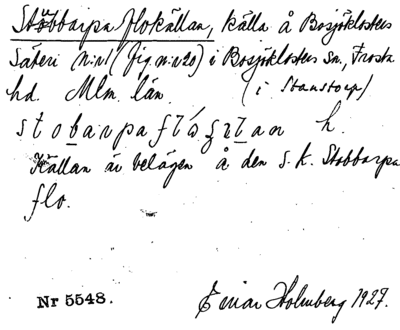 Stubbarpa flokällan, källa å Bosjöklosters
Säteri n:r 1 (fig n:r 20) i Bosjöklosters Sn., Frosta
hd. Mlm. län. (i Stanstorp)
h.
Källan är belägen å den s.k. Stobbarpa
flo.
Nr 5548. Einar Holmberg 1927.